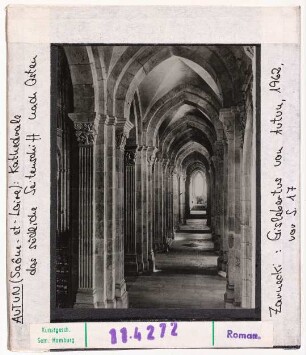 AUTUN (Saône-et-Loire): Kathedrale
das südliche Seitenschiff nach Osten
Zarnecki: Gislebertus von Autun, 1962,
vor S. 17
Kunstgesch.
Sem. Hamburg
11.4272
Roman.